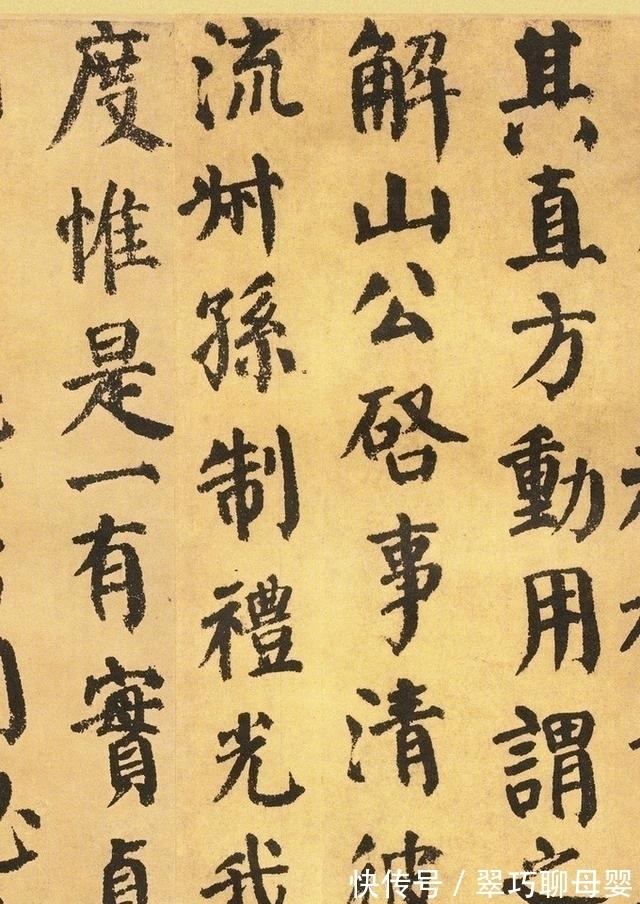 其直方動用謂
解山公啓事清彼
流叔孫制禮光我
度惟是一有實貞
快传号 / 翠巧聊母婴